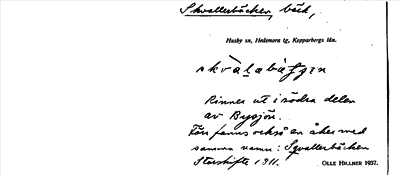 Skvallerbäcken, bäck,
Husby sn, Hedemora tg, Kopparbergs län.
Rinner ut i södra delen
av Bysjön.
Förr fanns också en åker med
samma namn: Sqvallerbäcken
Storskifte 1811. OLLE HILLNER 1937.